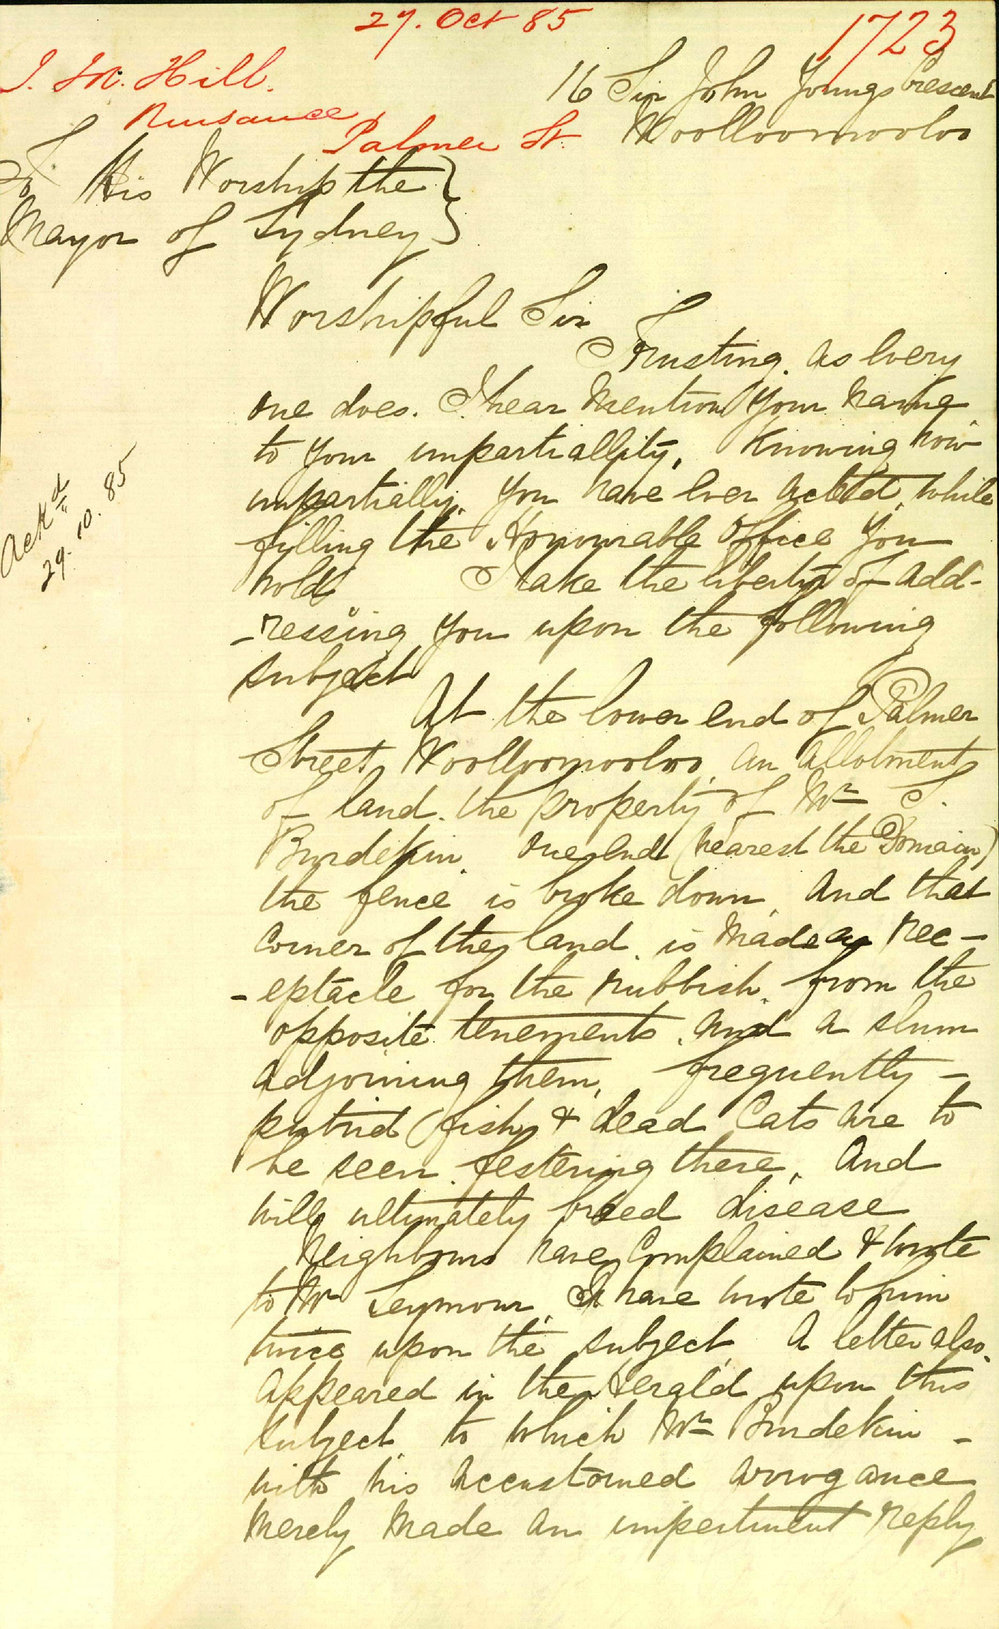 27. Oct 85
1723
J. M. Hill.
Nuisance
Palmer St.
16 Sir John Youngs Crescent
Woolloomooloo
To His Worship the
Mayor of Sydney
Worshipful Sir
Trusting. as every
one does. I hear mention your name
to your impartiallity, Knowing how
impartially. you have ever acted, while
filling the Honourable Office you
hold I take the liberty of add-
-ressing you upon the following
subject
At the lower end of Palmer
Street Woolloomooloo. an allotment
of land. the property of Mr S.
Burdekin. one end (nearest the Domain)
the fence is broke down, and that
corner of the land. is made a rec-
-eptacle for the rubbish. from the
opposite tenements. and a slum
adjoining them, frequently -
putrid fish & dead Cats are to
be seen festering there, And
will ultimately breed disease
Neighbours have Complained & wrote
to Mr Seymour, I have wrote to him
twice upon the subject A letter also.
appeared in the Herald upon this
subject, to which Mr Burdekin -
with his accustomed arrogance
merely made an impertinent reply
Ackd
29. 10. 85